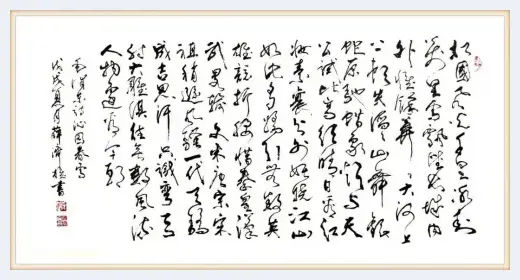 北國风光千里冰封
万里雪飘望长城内
外惟余莽莽大河上
下顿失滔滔山舞银
蛇原驰蜡象欲与天
公试比高须晴日看红
妆素裹分外妖娆江山
如此多娇引无数英
雄竞折腰惜秦皇汉
武略输文采唐宗宋
祖稍逊风骚一代天骄
成吉思汗只識弯弓
射大雕俱往矣数风流
人物还看今朝
毛泽东词沁园春雪
戊戌夏月薛书